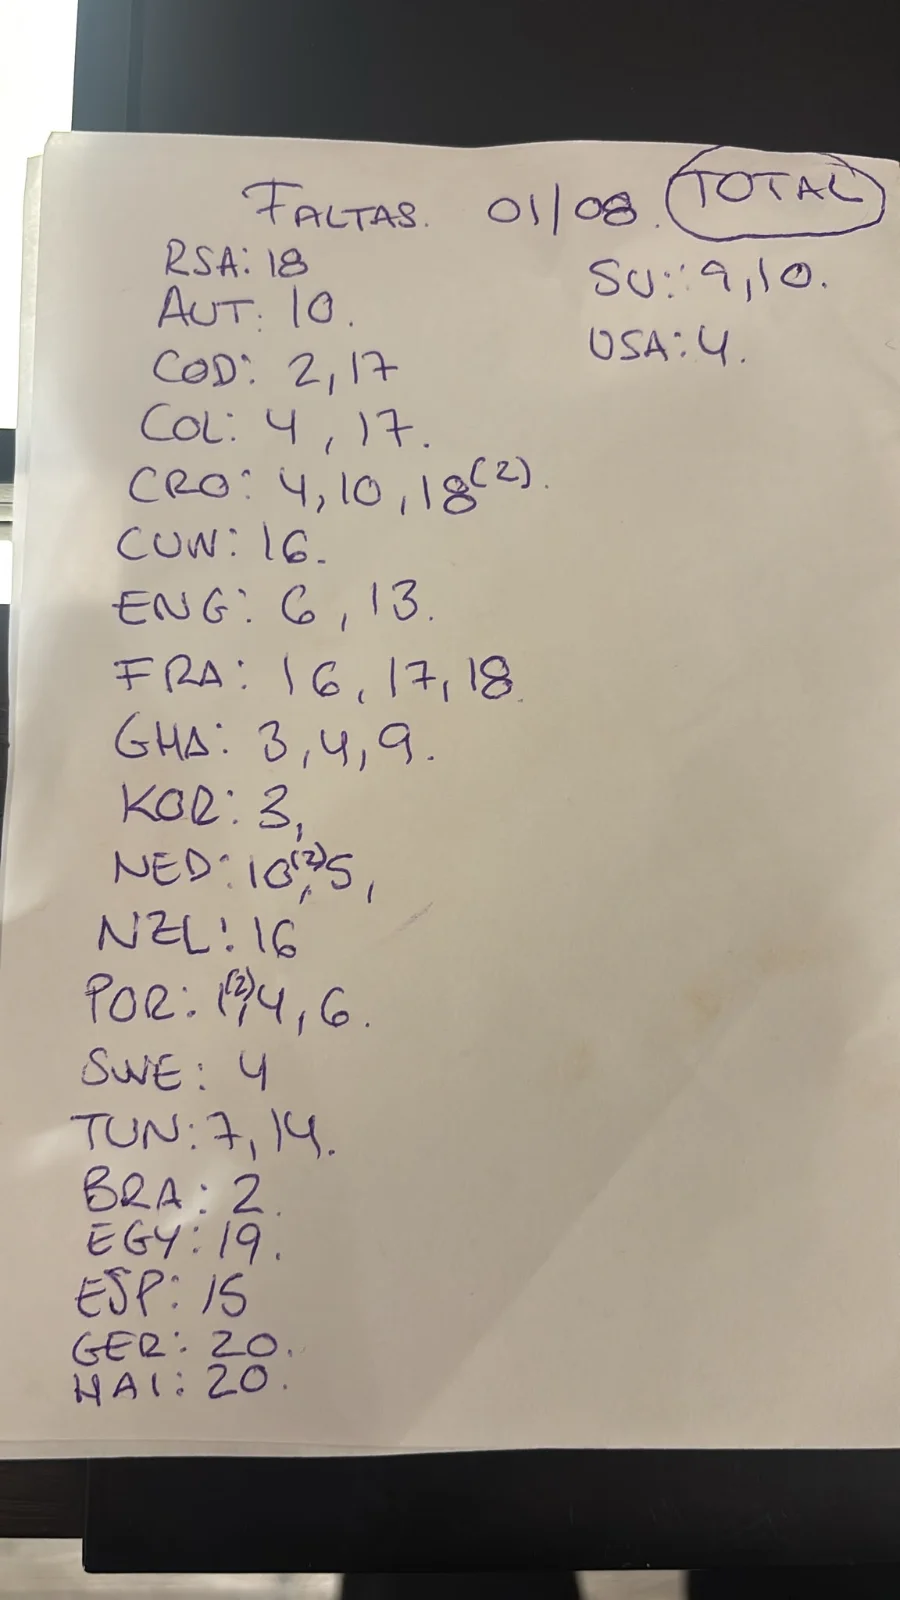 FALTAS. 01/08. TOTAL
RSA: 18
AUT: 10.
COD: 2,17
COL: 4, 17.
CRO: 4,10,18(2).
CUW: 16.
ENG: 6, 13.
FRA: 16, 17, 18.
GHA: 3,4,9.
KOR: 3,
NED: 10(2),5,
NZL: 16
POR: 1(2),4,6.
SWE: 4
TUN: 7,14.
BRA: 2.
EGY: 19.
ESP: 15
GER: 20.
HAI: 20.
SU: 9,10.
USA: 4.